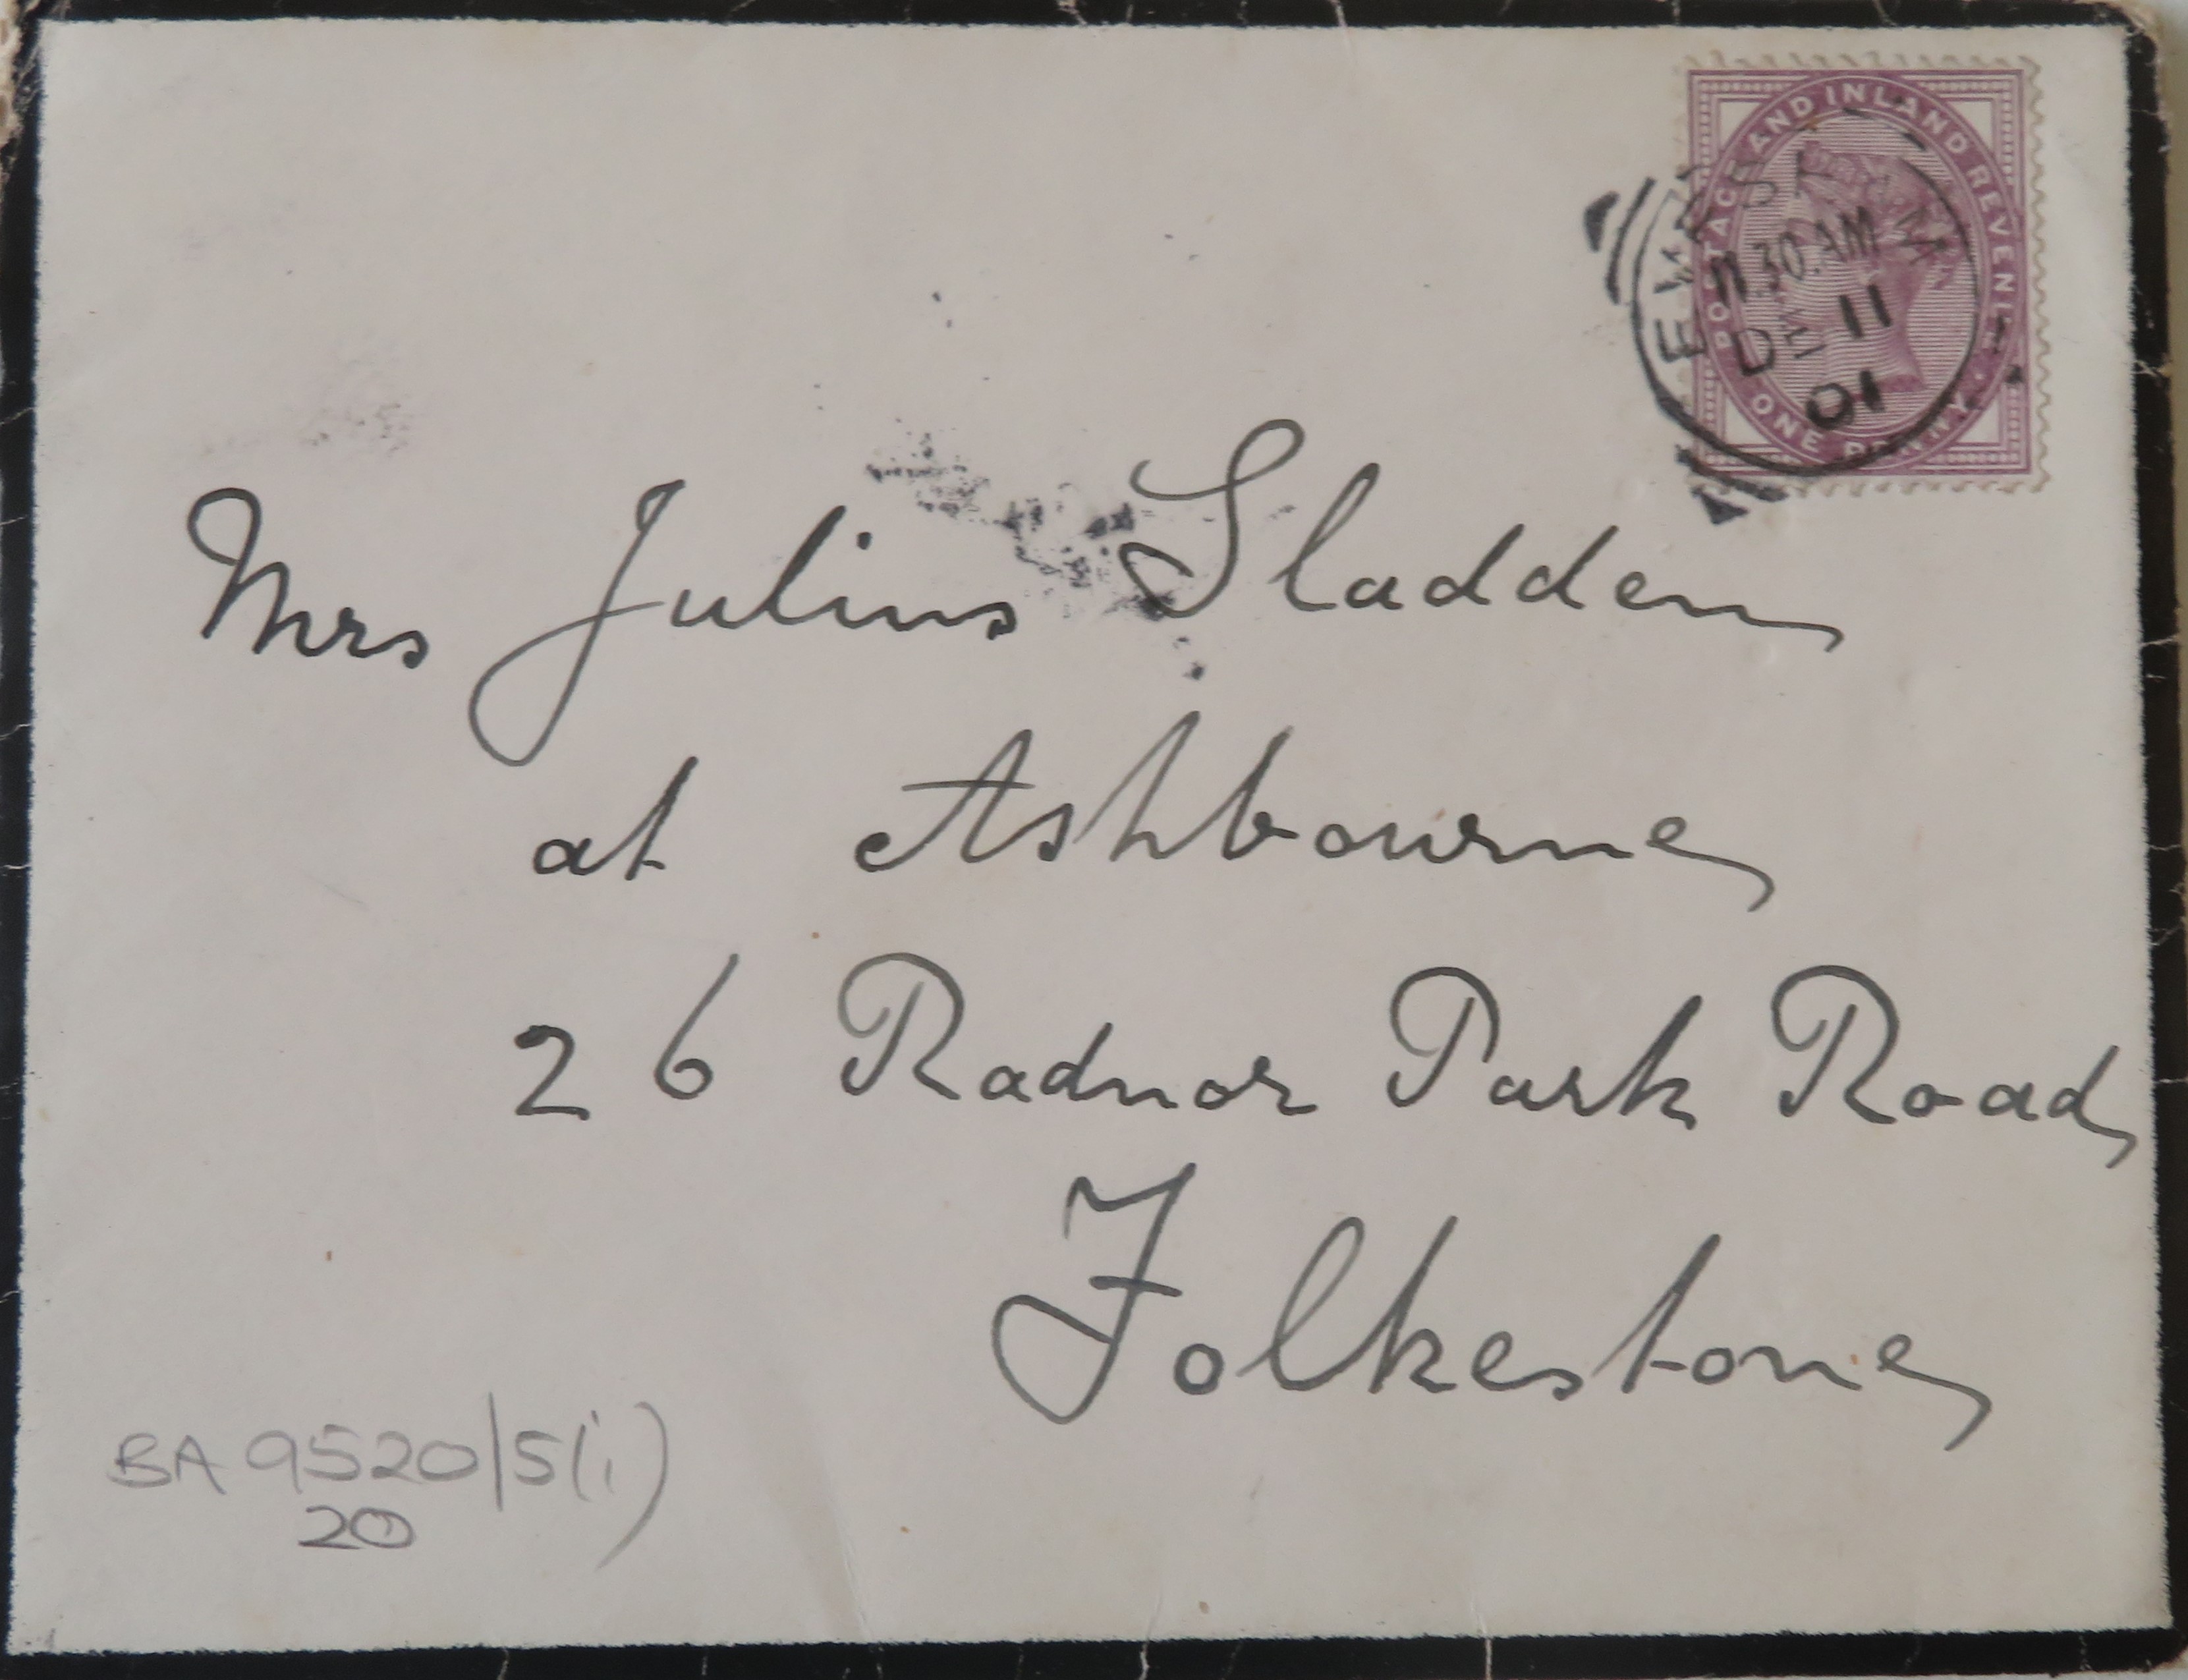 POSTAGE AND INLAND REVENUE
ONE PENNY
11.30.AM
DE 11
01
Mrs Julius Sladden
at Ashbourne
26 Radnor Park Road
Folkestone
BA 9520/5(i)
20